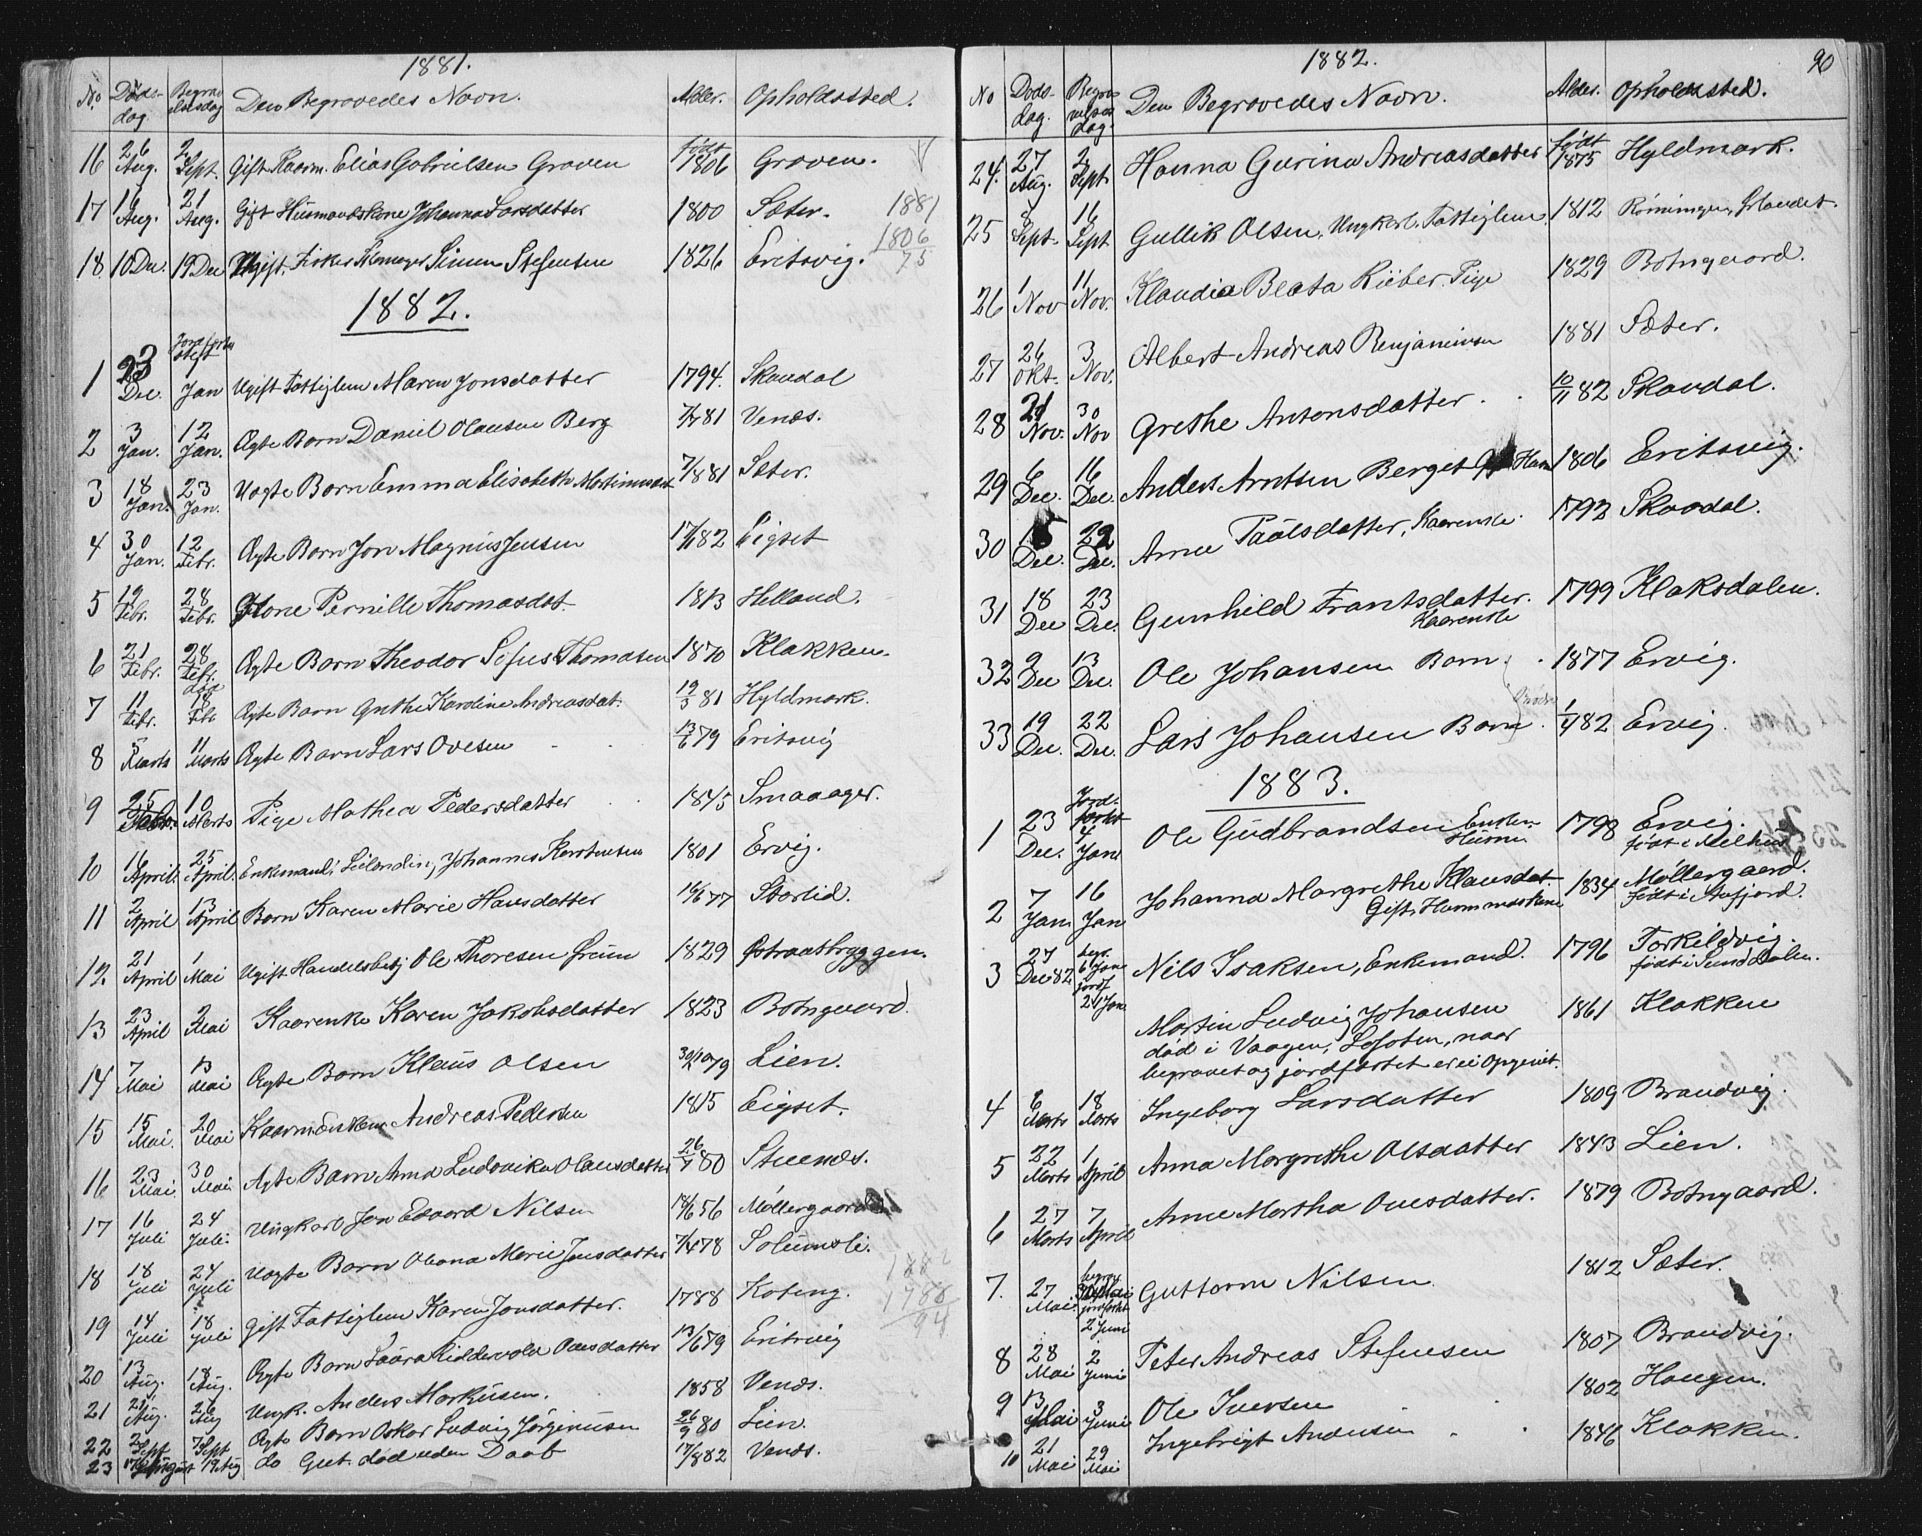 1881.
No Døds-dag Begravelsesdag Den Begravedes Navn. Alder. Opholdssted.
16 26 Aug. 2 Sept. Gift Kaarm. Elias Gabrielsen Graven født 1806 Graven.
17 16 Aug. 21 Aug. Gift Husmandskone Johanna Larsdatter 1800 Sæter. 1881
18 10 Dec. 19 Dec Ugift Fisker Simen Stefensen 1826 Eritsvig. 1806
75
1882.
1 23 Dec. Jordfæstet Jan Ugift Fattiglem Maren Jonsdatter 1794. Skavdal
2 3 Jan. 12 Jan. Ægte Barn Daniel Olausen Berg 7/7 81 Venæs.
3 18 Jan. 23 Jan. Uægte Barn Emma Elisabeth Martinusdt 7/8 81 Sæter.
4 30 Jan. 12 Febr. Ægte Barn Jon Magnus Jensen 17/1 82 Eigset
5 19 Febr. 28 Febr. Kone Pernille Thomasdat. 1813 Helland.
6 21 Febr. 28 Febr. Ægte Barn Theodor Sefus Thomasen 1870 Klakken.
7 11 Febr. 18 Feb Ægte Barn Grethe Karoline Andreasdat. 19/3 81 Hyldmark.
8 5 Marts 11 Marts Ægte Barn Lars Ovesen 13/6 79 Eritsvig
9 25 Febr. 10 Marts Pige Mathea Pedersdatter 1845 Smaaager.
10 16 April 25 April. Enkemand, Leilending Johannes Kerstensen 1801 Ervig.
11 2 April 13 April Barn Karen Marie Hansdatter 16/6 77 Storlid.
12. 21 April 1 Mai Ugift Handelsbetj Ole Thoresen Grüm 1829 Østraatbryggen.
13 23 April 2 Mai Kaarenke Karen Jakobsdatter 1823 Botngaard.
14 7 Mai 13 Mai Ægte Barn Klaus Olsen 30/10 79 Lien.
15 15 Mai. 20 Mai Kaarmand Andreas Pedersen 1815 Eigset.
16 23 Mai. 30 Mai Ægte Barn Anna Ludovika Olausdatter 26/7 80 Stuenæs.
17 16 Juli 24 Juli. Ungkarl Jon Edvard Nilsen 18/6 56 Møllergaard
18 18 Juli 24 Juli Uægte Barn Oluna Marie Jensdatter 7/4 78 Solumsli. 1882
19 14 Juli 18 Juli gift Fattiglem Karen Jonsdatter. 1788 Koteng. 1788
94
20 13 Aug. 18 Aug. Ægte Barn Laura Riddervold Ovesdatter 13/6 79 Eritsvig
21 21 Aug. 26 Aug Ungk. Anders Markusen. 1858 Venæs.
22 2 Sept 7 Sept Ægte Barn Oskar Ludvig Jørginusen 26/9 80 Lien.
23 17 August 19 Aug do Gut død uden Daab 17/8 82 Venæs.
1882. 90
No Døds-dag. Begravelsesdag. Den Begravedes Navn. Alder. Opholdssted.
24. 27 Aug. 2 Sept Hanna Gurina Andreasdatter født 1875 Hyldmark.
25 8 Sept. 16 Sept Gullik Olsen, Ungkarl. Fattiglem 1812 Rømmingen, Ørlandet.
26 1 Nov 11 Nov. Klaudia Beata Rieber. Pige 1829 Botngaard.
27 26 Okt. 3 Nov. Albert Andreas Benjaminsen 1881 Sæter.
28 21 Nov. 30 Nov Grethe Antonsdatter. 10/11 82 Skavdal.
29 6 Dec. 16 Dec. Anders Arntsen Berget 1806 Eritsvig.
30 15 Dec. 22 Dec. Anne Paalsdatter, Kaarenke. 1792 Skavdal.
31 18 Dec 23 Dec. Gunhild Frantsdatter. Kaarenke 1799 Klaksdalen.
32 2 Dec 13 Dec. Ole Johansen Barn. 1877 Ervig.
33 19 Dec. 22 Dec. Lars Johansen Barn. 1/4 82 Ervig.
1883.
1 23 Dec. Jordfæstet 4 Jan Ole Gudbrandsen 1798 Ervig.
født i Melhus
2 7 Jan 16 Jan Johanna Margrethe Klausdat. 1834 Møllergaard.
Gift Husmandskone født i Aafjord.
3 27 Dec 82 begr. 6 Jan jordf 21 Jan Nils Isaksen, Enkemand. 1796 Torkildvig.
født i Sunddalen.
Martin Ludvig Johansen 1861 Klakken
død i Vaagen, Lofoten, naar
begravet og jordfæstet er ei opgivet.
4 6 Marts 18 Marts Ingeborg Larsdatter 1809 Brandvig.
5 22 Marts 1 April Anna Margrethe Olsdatter 1843 Lien.
6 27 Marts 7 April Anne Martha Ovesdatter. 1879 Botngaard.
7. 27 Mai. begrav. Mai jordfæstet 2 Juni Guttorm Nilsen. 1812 Sæter.
8 28 Mai 2 Juni Peter Andreas Stefensen 1807 Brandvig.
9 13 Mai 3 Juni Ole Iversen 1802 Haugen.
10 21 Mai 29 Mai Ingebrigt Andersen 1846 Klakken.